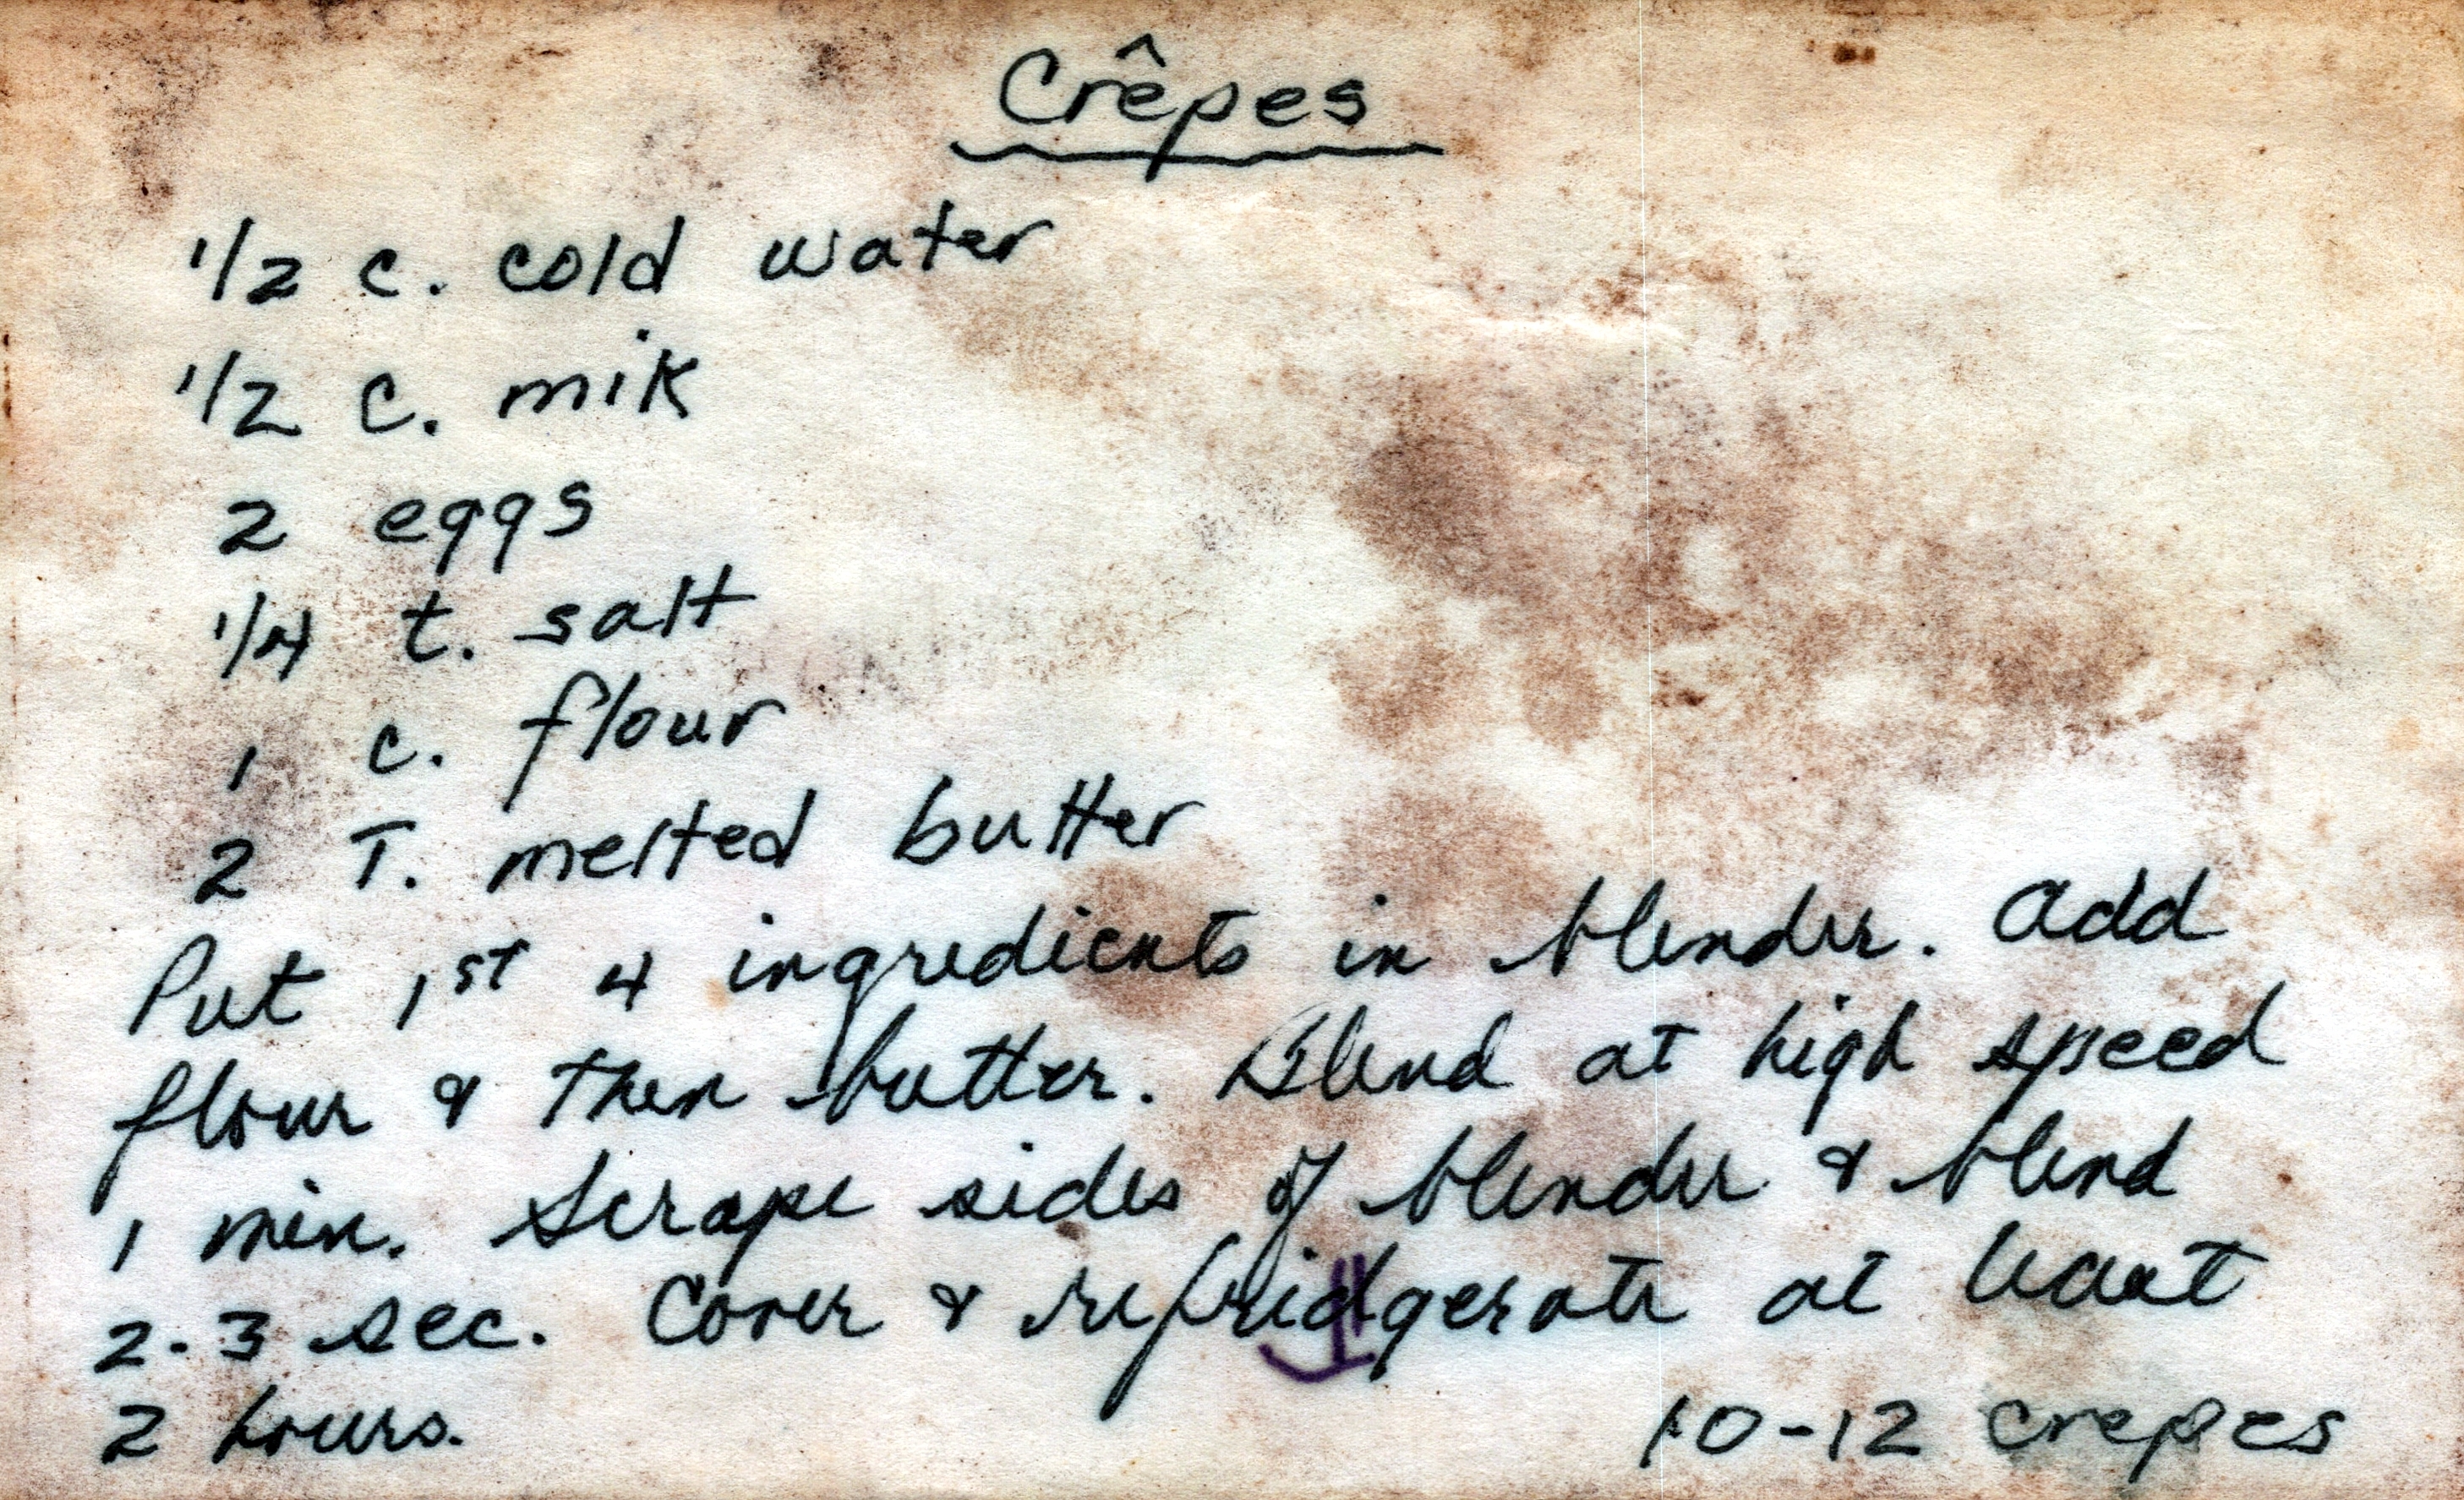 Crêpes
1/2 c. cold water
1/2 c. mik
2 eggs
1/4 t. salt
1 c. flour
2 T. melted butter
Put 1st 4 ingredients in blender. Add
flour & then butter. Blend at high speed
1 min. Scrape sides of blender & blend
2-3 sec. Cover & refridgerate at least
2 hours.
10-12 crepes